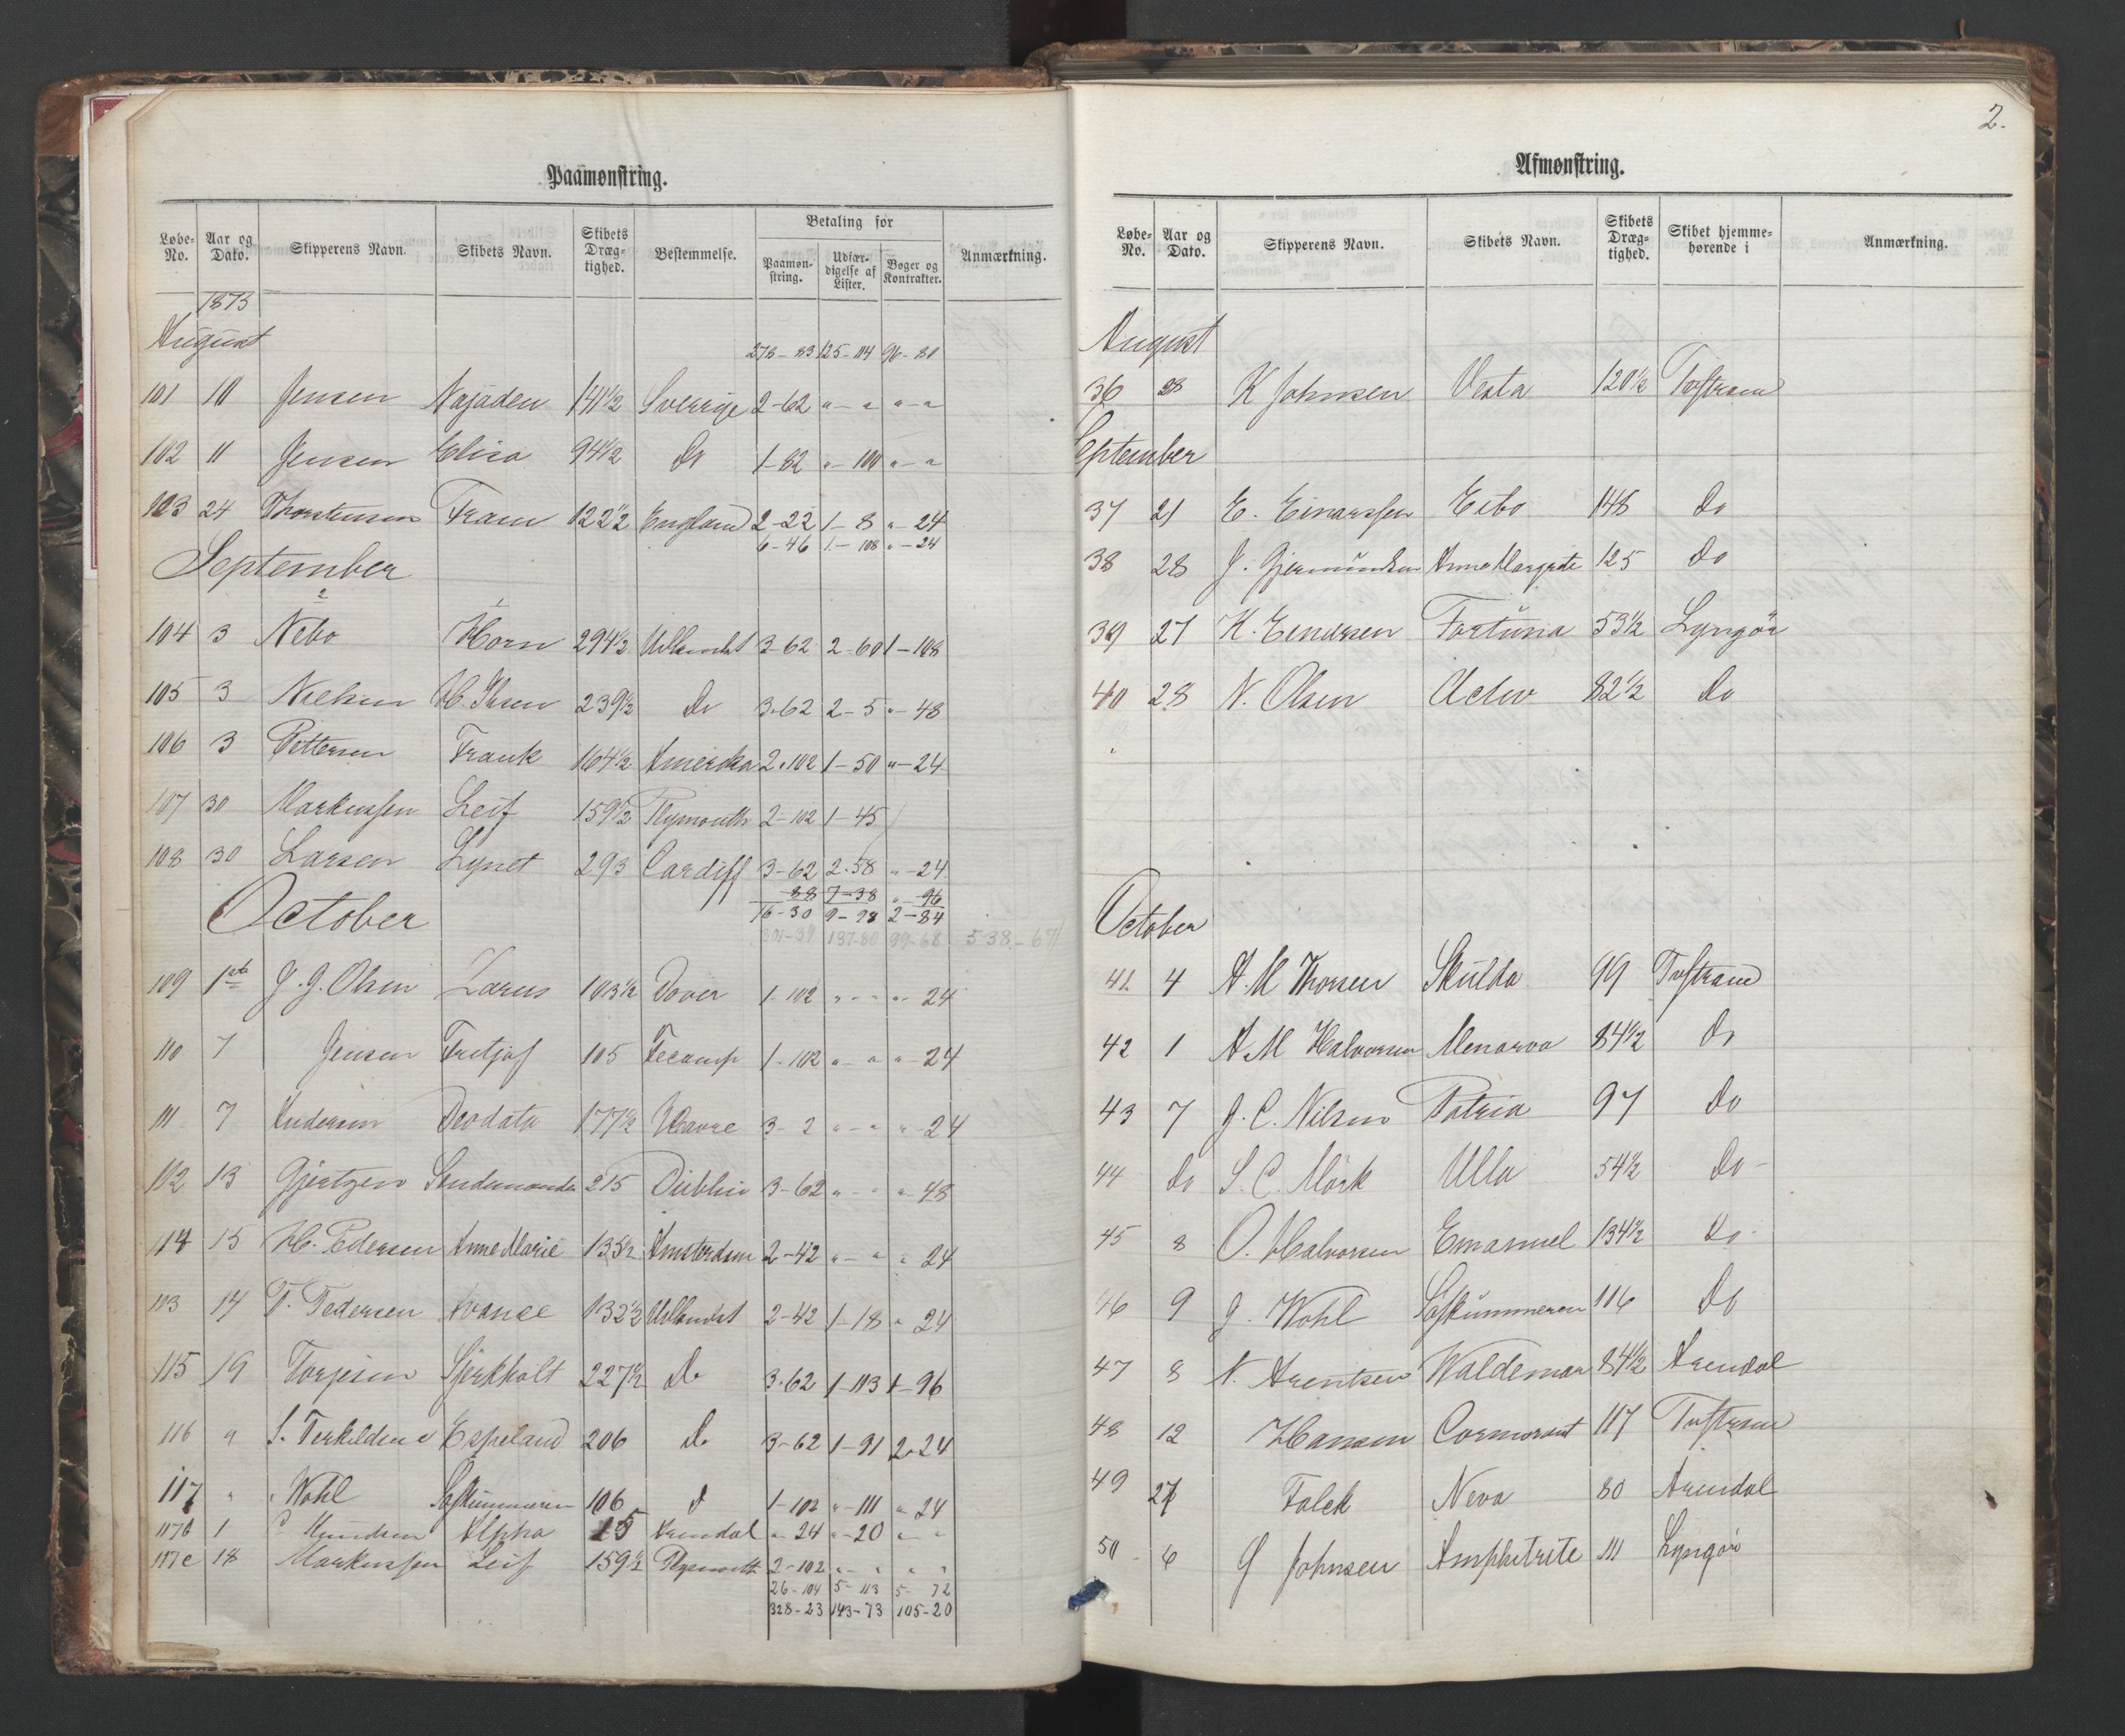 Paamønstring.
Løbe-No. | Aar og Dato. | Skipperens Navn. | Skibets Navn. | Skibets Dræg-tighed. | Bestemmelse. | Betaling for | Paamøn-string. | Udfær-digelse af Lister. | Bøger og Kontrakter. | Anmærkning.
1873
August 278-83 125-114 90-80
101 10 Jensen Najaden 141½ Sverrige 2-62 "-" "-"
102 11 Jensen Elisa 94½ Do 1-82 "-100 "-"
103 24 Thorstensen Fram 122½ England 2-22 1-8 "-24
6-46 1-108 "-24
September
104 3 Nebo Horn 294½ Udlandet 3-62 2-60 1-108
105 3 Nielsen 239½ Do 3-62 2-5 "-48
106 3 Pettersen Frank 164½ Amerika 2-102 1-50 "-24
107 30 Markussen Leif 159½ Plymouth 2-102 1-45
108 30 Larsen Lynet 293 Cardiff 3-62 2-58 "-24
88 7-38 "-96
16-30 9-98 2-84
October 301-39 137-80 99-68 538-67
109 1ste J. J. Olsen Zarus 103½ Dover 1-102 "-" "-24
110 7 Jensen Fritjof 105 Fecamp 1-102 "-" "-24
111 7 Andersen Deodata 177½ Havre 3-2 "-" "-24
102 13 Gjertzen 215 Dublin 3-62 "-" "-48
114 15 H. Pedersen Anne Marie 135½ Amsterdam 2-42 "-" "24
113 14 T. Pedersen Avance 132½ Udlandet 2-42 1-18 "24
115 19 Torjesen Sjerkholt 227½ Do 3-62 1-113 1-96
116 " S. Terkildsen Espeland 206 Do 3-62 1-91 2-24
117 " Wohl Søstkummeren 106 d 1-102 "-111 "24
117b 1 Knudsen Alpha 15 Arendal "-24 "-20 "-"
117c 18 Markussen Leif 159½ Plymouth 2-102 "-" "-"
26-104 5-113 5-72
328-23 143-73 105-20
2.
Afmønstring.
Løbe-No. | Aar og Dato. | Skipperens Navn. | Skibets Navn. | Skibets Dræg-tighed. | Skibet hjemme-hørende i | Anmærkning.
August
36 28 K Johnsen Vesta 120½ Tvestrand
September
37 21 E. Einarssen Eibo 148 Do
38 28 J. Gjermundsen Anne Margrete 125 Do
39 27 K. Eendesen Fortuna 53½ Lyngør
40 28 N. Olsen Activ 82½ do
October
41 4 A. M Thorsen Skulda 99 Tvestrand
42 1 A M Halvorsen Menarva 84½ Do
43 7 J. C. Nilsen Patria 97 Do
44 Do S. C. Mørk Ulla 54½ Do -
45 8 O. Halvorsen Emanuel 134½ Do -
46 9 J. Wohl Søstkummeren 116 Do
47 8 N. Arentsen Waldemar 84½ Arendal
48 12 Hansen Cormorant 117 Tvestrand
49 27 Falck Neva 80 Arendal
50 6 G Johnsen Amphitrite 111 Lyngør